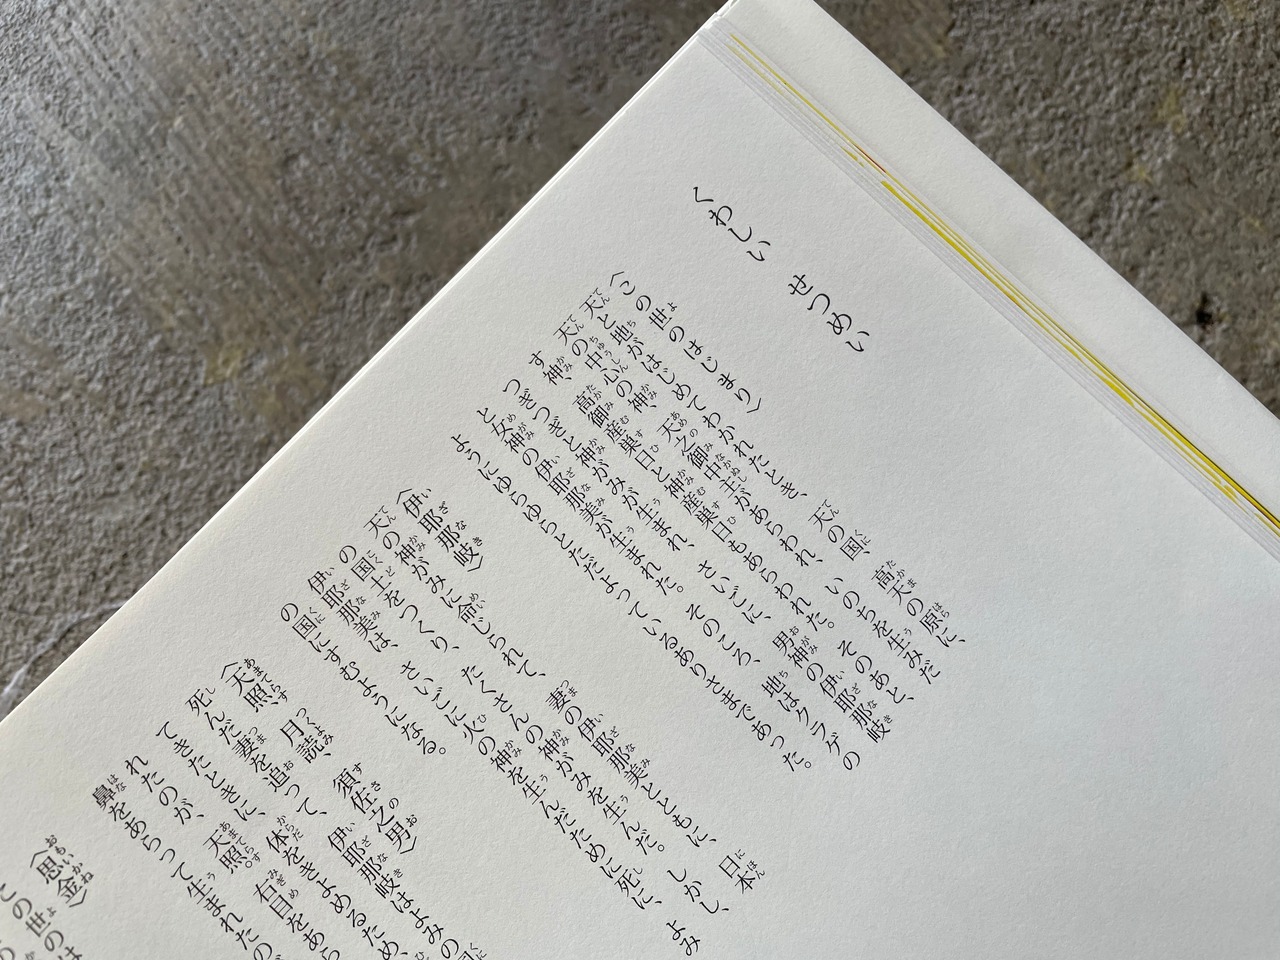 くわしい せつめい
〈この世のはじまり〉
天と地がはじめてわかれたとき、天の国、高天の原に、
天の中心の神、天之御中主があらわれ、いのちを生みだ
す神、高御産巣日と神産巣日もあらわれた。そのあと、
つぎつぎと神がみが生まれ、さいごに、男神の伊耶那岐
と女神の伊耶那美が生まれた。そのころ、地はクラゲの
ようにゆらゆらとただよっているありさまであった。
〈伊耶那岐〉
天の神がみに命じられて、妻の伊耶那美とともに、日本
の国土をつくり、たくさんの神がみを生んだ。しかし、
伊耶那美は、さいごに火の神を生んだために死に、よみ
の国にすむようになる。
〈天照、月読、須佐之男〉
死んだ妻を追って、伊耶那岐はよみの国
てきたときに、体をきよめるため、
れたのが、天照。右目をあら
鼻をあらって生まれたの
〈思金〉
この世のは